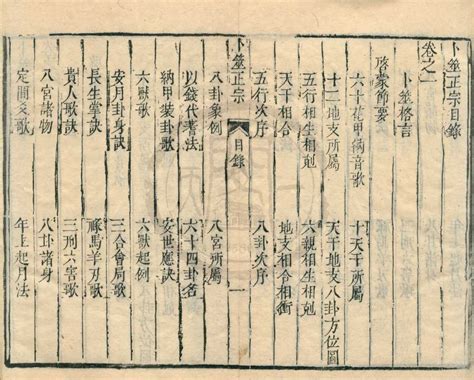 卜筮正宗目錄
卷之一
卜筮格言
啓蒙節要
六十花甲納音歌　十天干所屬
十二地支所屬　天干地支八卦方位圖
五行相生相剋　六親相生相剋
天干相合　地支相合相衝
五行次序　八卦次序
卜筮正宗　目錄　一
八卦象例　八宮所屬
以錢代蓍法　六十四卦名
納甲裝卦歌　安世應訣
六獸歌　六獸起例
安月卦身訣　三合會局歌
長生掌訣　祿馬羊刃歌
貴人歌訣　三刑六害歌
八宮諸物　八卦諸身
定間爻歌　年上起月法